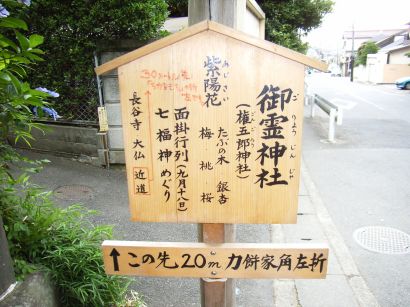 御霊神社
ごりょうじんじゃ
(権五郎神社)
たぶの木 銀杏
紫陽花
あじさい
梅 桃 桜
面掛行列(九月十八日)
七福神めぐり
長谷寺 大仏 近道
↑この先20m力餅家角左折